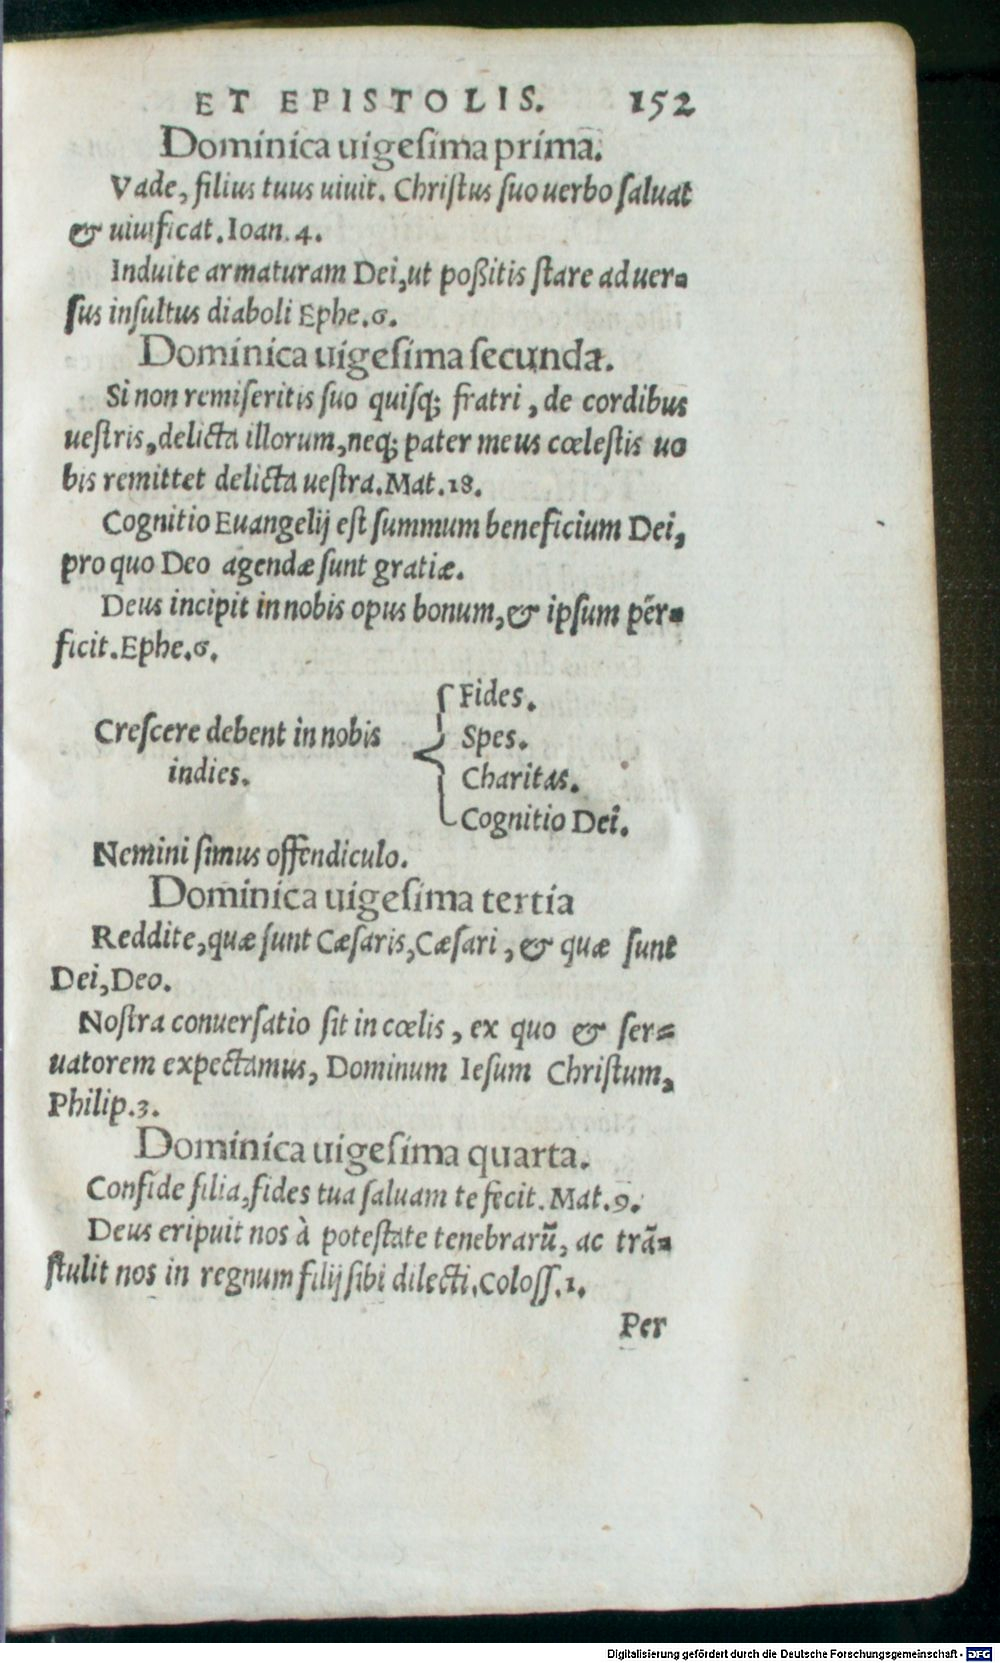 ET EPISTOLIS. 152
Dominica uigeſima prima.
Vade, filius tuus uiuit. Chriſtus ſuo uerbo ſaluat
& uiuificat. Ioan. 4.
Induite armaturam Dei, ut poßitis ſtare aduer-
ſus inſultus diaboli Ephe. 6.
Dominica uigeſima ſecunda.
Si non remiſeritis ſuo quiſq; fratri, de cordibus
ueſtris, delicta illorum, neq; pater meus cœleſtis uo
bis remittet delicta ueſtra. Mat. 18.
Cognitio Euangelij eſt ſummum beneficium Dei,
pro quo Deo agendæ ſunt gratiæ.
Deus incipit in nobis opus bonum, & ipſum per-
ficit. Ephe. 6.
Creſcere debent in nobis
indies.
Fides.
Spes.
Charitas.
Cognitio Dei.
Nemini ſimus offendiculo.
Dominica uigeſima tertia
Reddite, quæ ſunt Cæſaris, Cæſari, & quæ ſunt
Dei, Deo.
Noſtra conuerſatio ſit in cœlis, ex quo & ſer-
uatorem expectamus, Dominum Ieſum Chriſtum,
Philip. 3.
Dominica uigeſima quarta.
Confide filia, fides tua ſaluam te fecit. Mat. 9.
Deus eripuit nos à poteſtate tenebrarũ, ac trã-
ſtulit nos in regnum filij ſibi dilecti. Coloſſ. 1.
Per
Digitalisierung gefördert durch die Deutsche Forschungsgemeinschaft - DFG